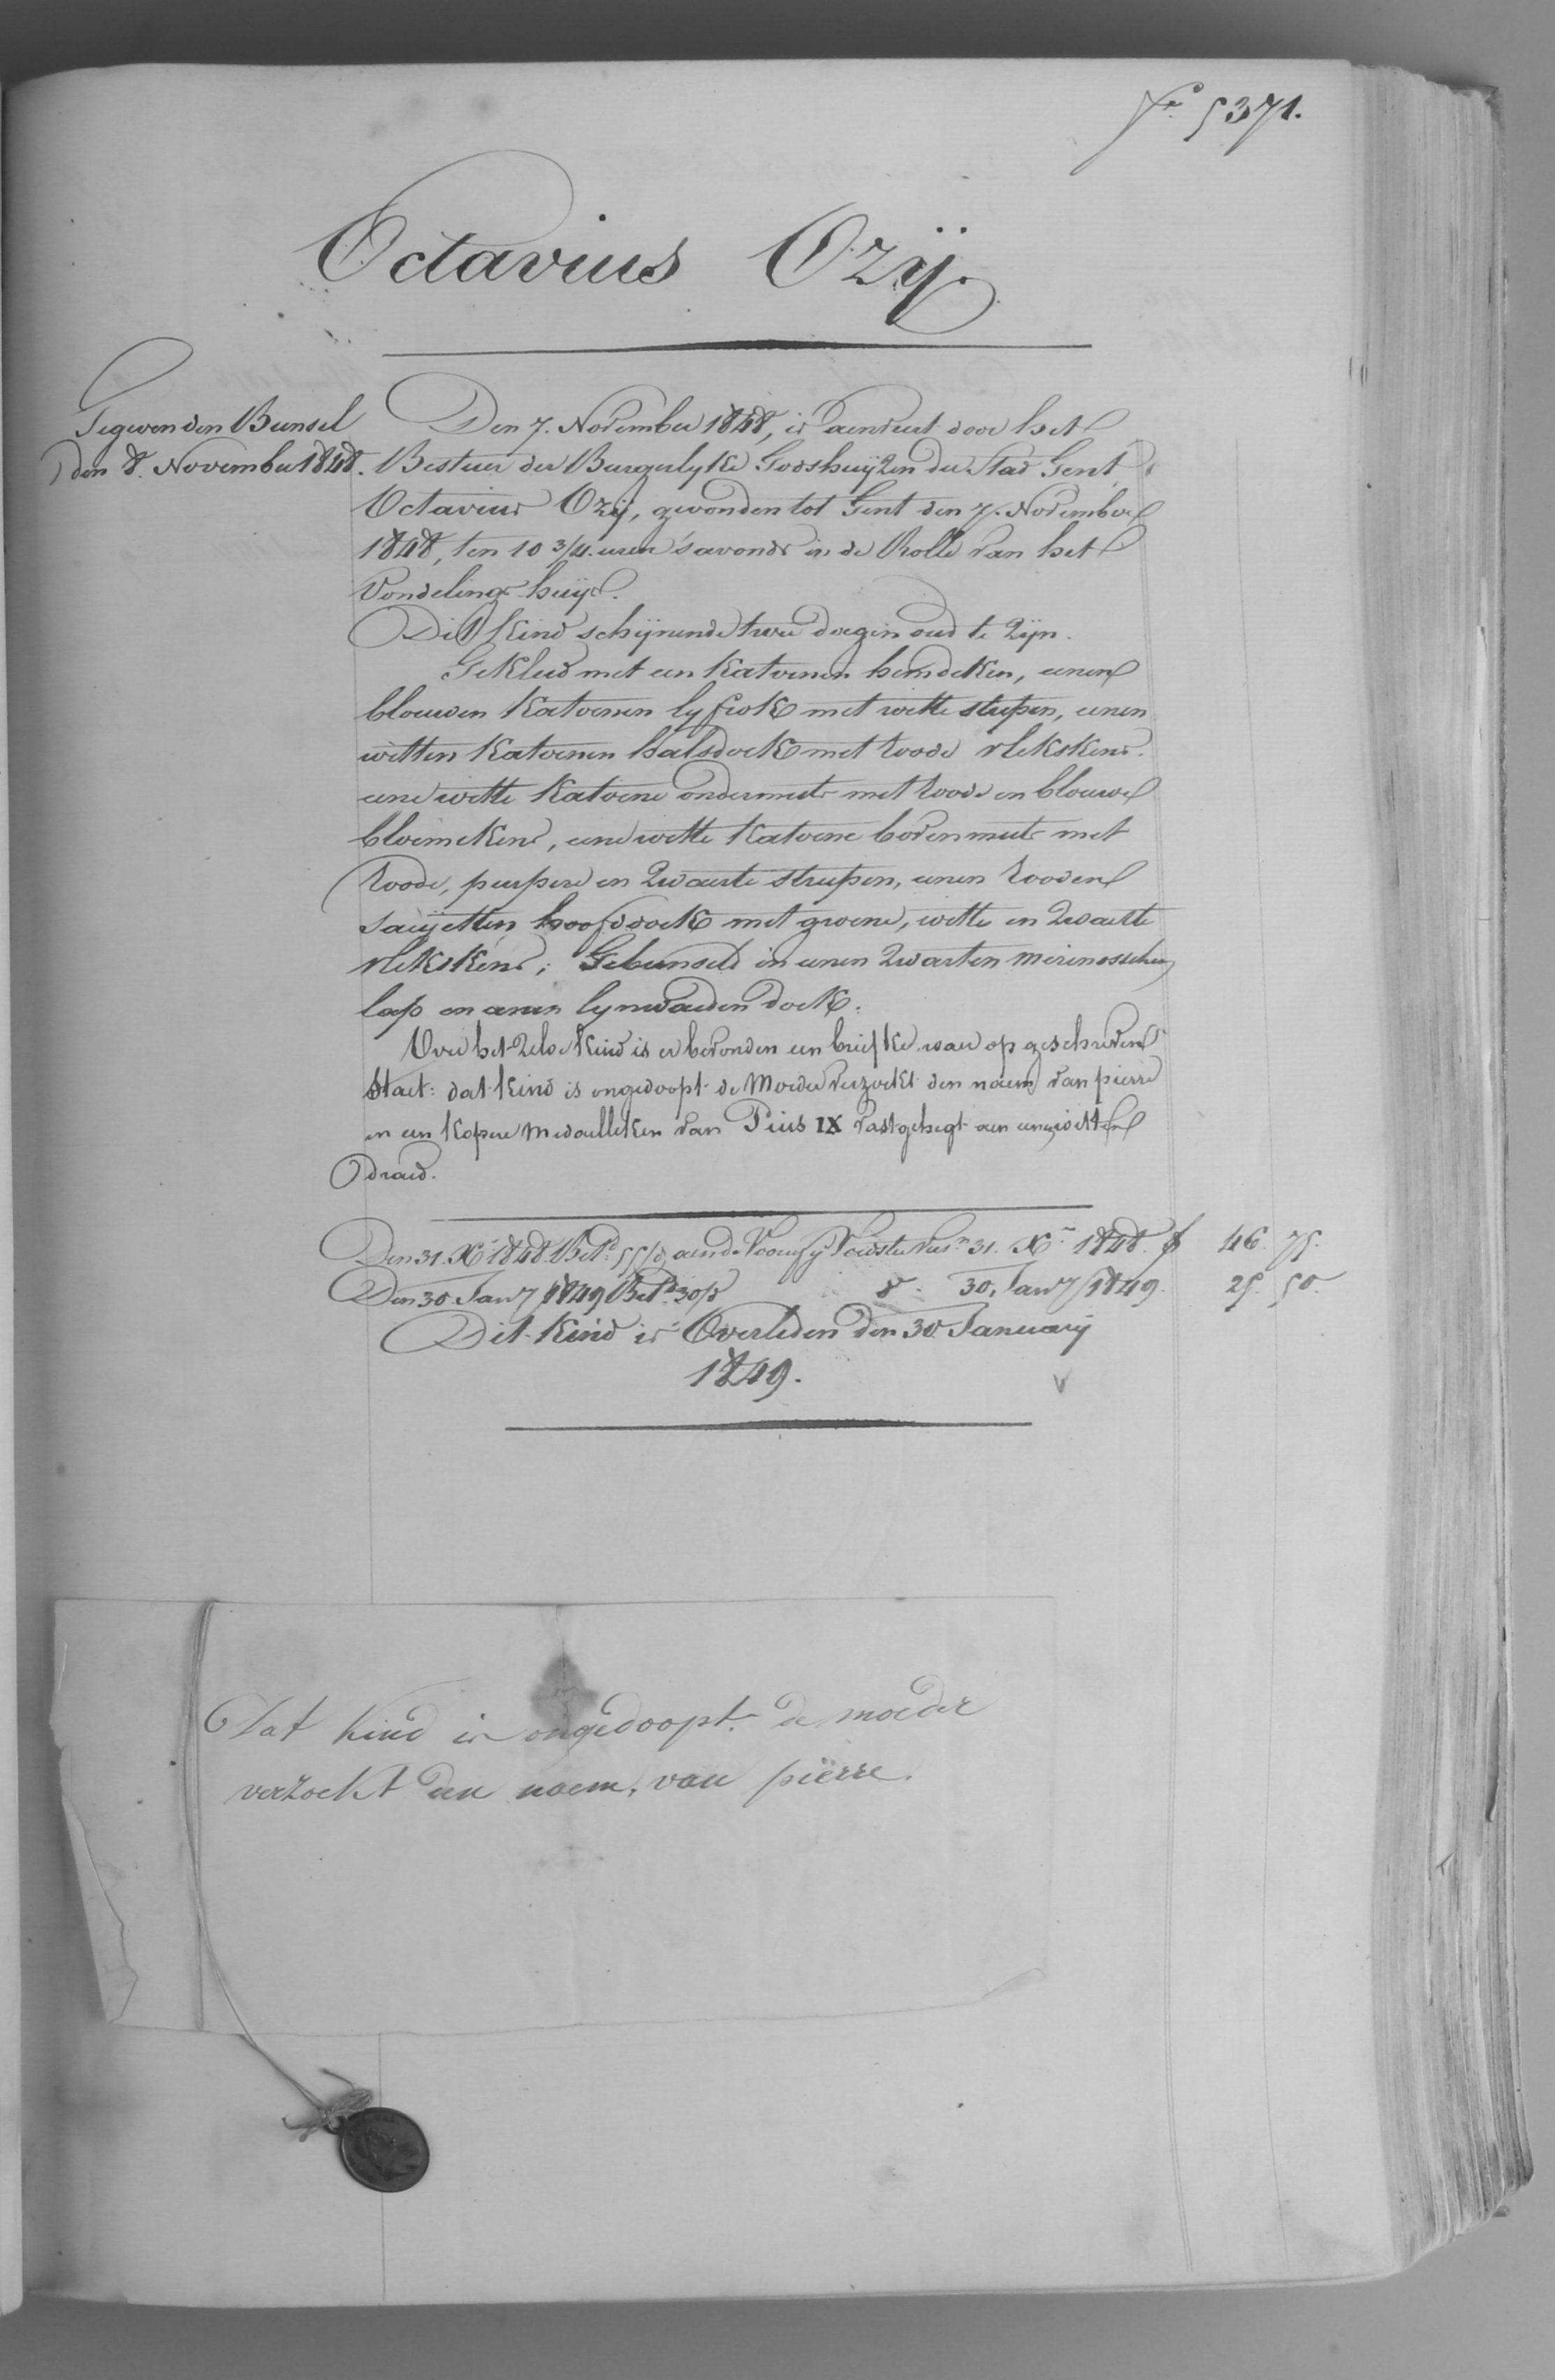 F° 5371.
Octavius Ozÿ.
Gegeven den Bunsel
den 8. November 1848.
Den 7. November 1848, is aenveert door het
Bestuer der Burgerlyke Godshuÿzen der Stad Gent,
Octavius Ozÿ, gevonden tot Gent den 7. November
1848, ten 10 3/4 uren 's avonds in de Rolle van het
Vondelings-huÿs.
Dit kind schijnende twee dagen oud te zijn.
Gekleed met een katoenen hemdeken, eenen
blouwen katoenen lyfrok met witte strepen, eenen
witten katoenen halsdoek met roode vlekskens.
eene witte katoene ondermuts met roode en blouwe
bloemekens, eene witte katoene bovenmuts met
roode, purpere en zwarte strepen, eenen rooden
saeÿetten hoofddoek met groene, witte en zwarte
vlekskens; Gebunseld in eenen zwarten merinosschen
lap en eenen lynwaeden doek.
Over het zelve kind is er bevonden een briefke waer op geschreven
staet: dat kind is ongedoopt de moeder verzoekt den naem van pierre
en een kopere medaelleken van Pius IX vastgehegt aen eenen witten
draed.
Den 31. X 1848 Bet. 55/d aen de Voorsz Voedster 31. X 1848. f 46. 75.
Den 30. Jany 1849 Bet. 30/d d°. 30. Jany 1849. 25. 50.
Dit kind is Overleden den 30 January
1849.
Dat kind is ongedoopt. de moeder
verzoekt den naem, van pierre.